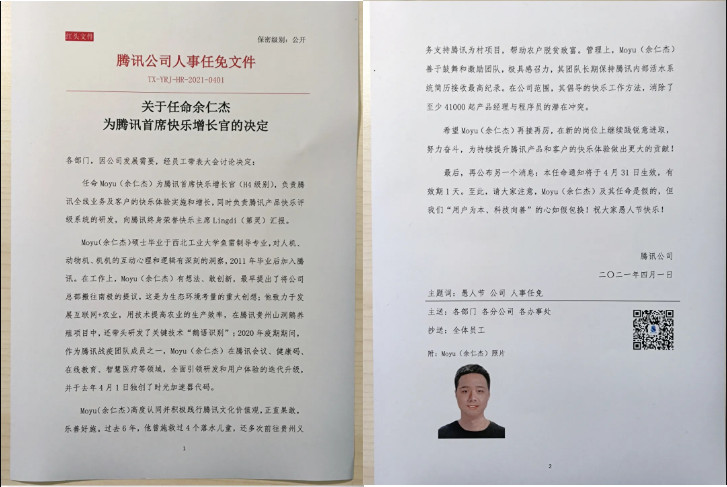 红头文件
保密级别：公开
腾讯公司人事任免文件
TX-YRJ-HR-2021-0401
关于任命余仁杰
为腾讯首席快乐增长官的决定
各部门，因公司发展需要，经员工带表大会讨论决定：
任命Moyu（余仁杰）为腾讯首席快乐增长官（H4级别），负责腾
讯全线业务及客户的快乐体验实施和增长，同时负责腾讯产品快乐评
级系统的研发，向腾讯终身荣誉快乐主席Lingdi（翎灵）汇报。
Moyu（余仁杰）硕士毕业于西北工业大学鱼雷制导专业，对人机、
动物机、机机的互动心理和逻辑有深刻的洞察，2011年毕业后加入腾
讯。在工作上，Moyu（余仁杰）有想法、敢创新，最早提出了将公司
总部搬往南极的提议，这是为生态环境考量的重大创想；他致力于发
展互联网+农业，用技术提高农业的生产效率，在腾讯贵州山洞鹅养
殖项目中，还带头研发了关键技术“鹅语识别”；2020年疫期期间，
作为腾讯战疫团队成员之一，Moyu（余仁杰）在腾讯会议、健康码、
在线教育、智慧医疗等领域，全面引领研发和用户体验的迭代升级，
并于去年4月1日独创了时光加速器代码。
Moyu（余仁杰）高度认同并积极践行腾讯文化价值观，正直果敢，
乐善好施。过去6年，他曾施救过4个落水儿童，还多次前往贵州义
1
务支持腾讯为村项目，帮助农户脱贫致富。管理上，Moyu（余仁杰）
善于鼓舞和激励团队，极具感召力，其团队长期保持腾讯内部活水系
统简历接收最高纪录。在公司范围，其倡导的快乐工作方法，消除了
至少41000起产品经理与程序员的潜在冲突。
希望Moyu（余仁杰）再接再厉，在新的岗位上继续践锐意进取，
努力奋斗，为持续提升腾讯产品和客户的快乐体验做出更大的贡献！
最后，再公布另一个消息：本任命通知将于4月31日生效，有
效期1天。至此，请大家注意，Moyu（余仁杰）及其任命是假的，但
我们“用户为本、科技向善”的心如假包换！祝大家愚人节快乐！
腾讯公司
二〇二一年四月一日
主题词：愚人节 公司 人事任免
主送：各部门 各分公司 各办事处
抄送：全体员工
附：Moyu（余仁杰）照片
2